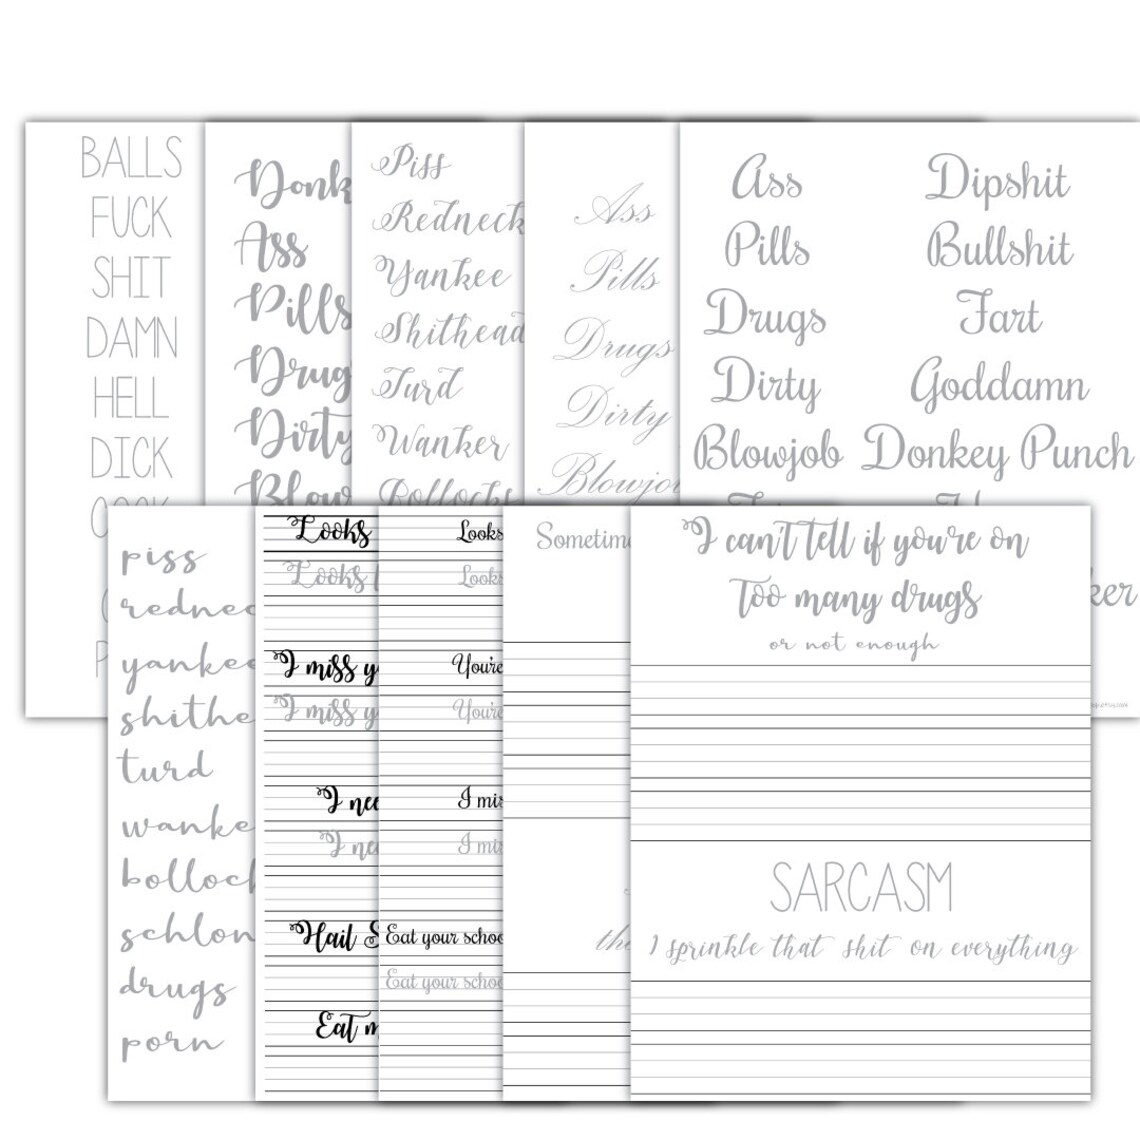 BALLS
FUCK
SHIT
DAMN
HELL
DICK
Donk
Ass
Pills
Drug
Dirty
Blow
Piss
Redneck
Yankee
Shithead
Turd
Wanker
Bollocks
Ass
Pills
Drugs
Dirty
Blowjo
Ass
Pills
Drugs
Dirty
Blowjob
Dipshit
Bullshit
Fart
Goddamn
Donkey Punch
ker
piss
rednec
yankee
shithe
turd
wanke
bolloc
schlon
drugs
porn
Looks
Looks
I miss y
I miss y
I nee
I ne
Hail S
Eat m
Looks
Looks
You're
You're
I mis
I mis
Eat your schoo
Eat your schoo
Sometime
the
I can't tell if you're on
too many drugs
or not enough
SARCASM
I sprinkle that shit on everything